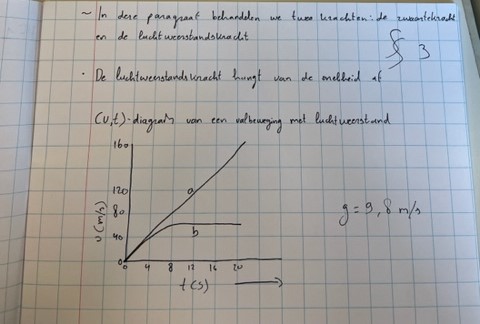 ~ In deze paragraaf behandelen we twee krachten: de zwaartekracht
en de luchtweerstandskracht
§ 3
· De luchtweerstandskracht hangt van de snelheid af
(v,t)-diagram van een valbeweging met luchtweerstand
160
120
80
40
0
v (m/s)
a
b
4 8 12 16 20
t(s)
g = 9,8 m/s